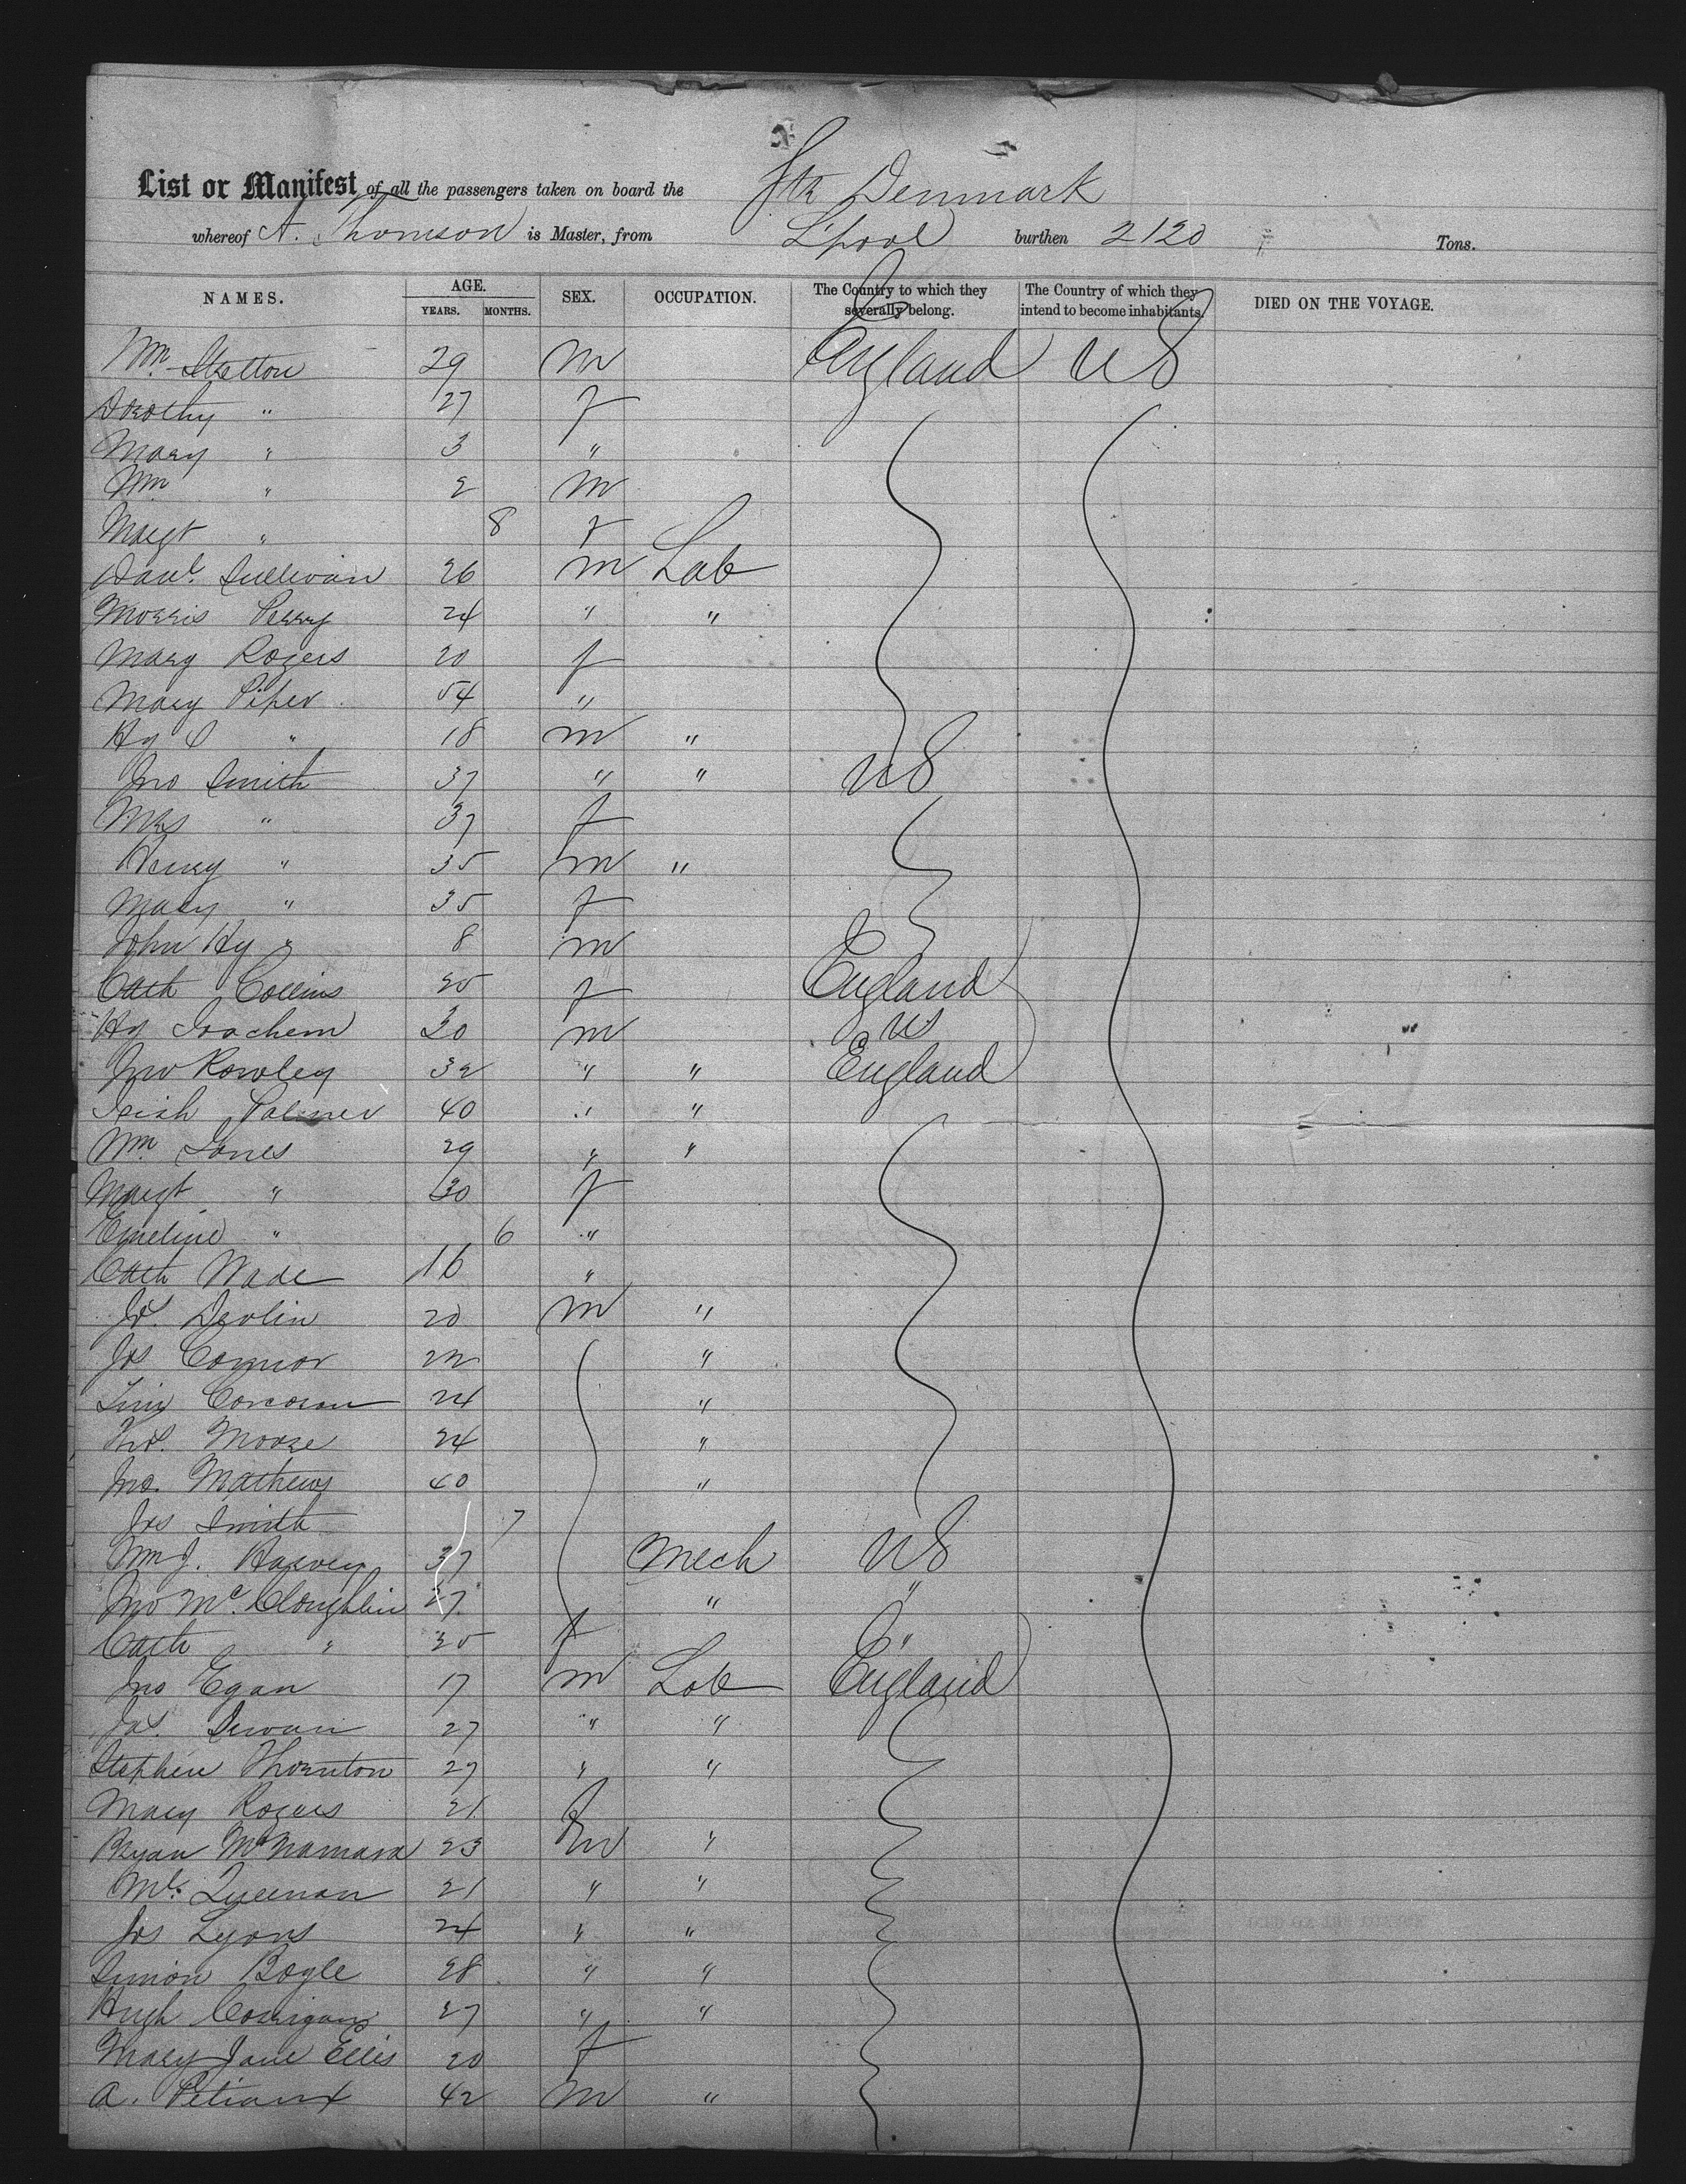 List or Manifest of all the passengers taken on board the Str Denmark
whereof A. Thomson is Master, from L'pool burthen 2120 Tons.
NAMES. AGE. SEX. OCCUPATION. The Country to which they severally belong. The Country of which they intend to become inhabitants. DIED ON THE VOYAGE.
YEARS. MONTHS.
Wm Skelton 29 m England US
Dorothy " 27 f
Mary " 3 "
Wm " 2 m
Margt " 8 f
Danl. Sullivan 26 m Lab
Morris Perry 24 " "
Mary Rogers 20 f
Mary Piper 54 "
Hy " 18 m "
Jno Smith 37 " " US
Mrs " 37 f
Henry " 35 m "
Mary " 35 f
John Hy " 8 m
Cath Collins 20 f England
Hy Joachem 30 m US
Jno Rowley 32 " " England
Palmer 40 " "
Wm Jones 29 " "
Margt " 30 f
Emeline " 6 "
Cath Wade 16 "
Devlin 20 m "
Jos Connor 22 "
Tim Corcoran 24 "
Moore 24 "
Jno. Mathews 40 "
Jos Smith 7
Wm J. Harvey 37 Mech US
Jno McCloughlin 27 " "
Cath " 30 f "
Jno Egan 17 m Lab England
Jas. 27 " "
Stephen Thornton 27 " "
Mary Rogers 21 f
Bryan McNamara 23 m "
Ml. Queenan 21 " "
Jos Lyons 24 " "
Simon Bogle 28 " "
Hugh Corrigan 27 " "
Mary Jane Ellis 20 f
A. 42 m "